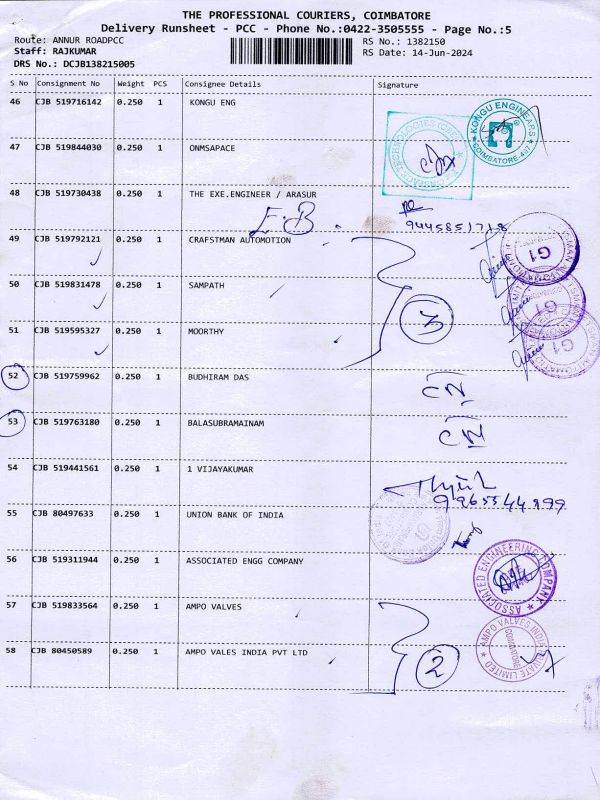 THE PROFESSIONAL COURIERS, COIMBATORE
Delivery Runsheet - PCC - Phone No.:0422-3505555 - Page No.:5
Route: ANNUR ROADPCC
Staff: RAJKUMAR
DRS No.: DCJB138215005
RS No.: 1382150
RS Date: 14-Jun-2024
S No Consignment No Weight PCS Consignee Details Signature
46 CJB 519716142 0.250 1 KONGU ENG
KONGU ENGINEARS
COIMBATORE
47 CJB 519844030 0.250 1 ONMSAPACE
48 CJB 519730438 0.250 1 THE EXE.ENGINEER / ARASUR
E.B
9445851718
49 CJB 519792121 0.250 1 CRAFSTMAN AUTOMOTION
G1
50 CJB 519831478 0.250 1 SAMPATH
3
51 CJB 519595327 0.250 1 MOORTHY
G1
52 CJB 519759962 0.250 1 BUDHIRAM DAS
CN
53 CJB 519763180 0.250 1 BALASUBRAMAINAM
CN
54 CJB 519441561 0.250 1 1 VIJAYAKUMAR
9965544899
55 CJB 80497633 0.250 1 UNION BANK OF INDIA
56 CJB 519311944 0.250 1 ASSOCIATED ENGG COMPANY
ASSOCIATED ENGINEERING COMPANY
57 CJB 519833564 0.250 1 AMPO VALVES
58 CJB 80450589 0.250 1 AMPO VALES INDIA PVT LTD
2
AMPO VALVES INDIA PRIVATE LIMITED
COIMBATORE